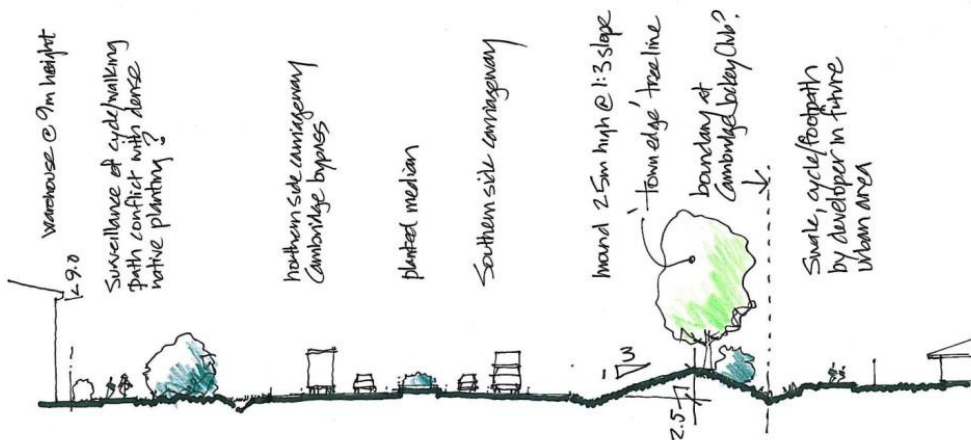 warehouse @ 9m height
<9.0
Surveillance of cycle/walking
path conflict with dense
native planting?
northern side carriageway
Cambridge bypass
planted median
Southern side carriageway
mound 2.5m high @ 1:3 slope
'town edge' treeline
boundary at
Cambridge Jockey Club?
Swale, cycle/footpath
by developer in future
urban area
1
3
2.5